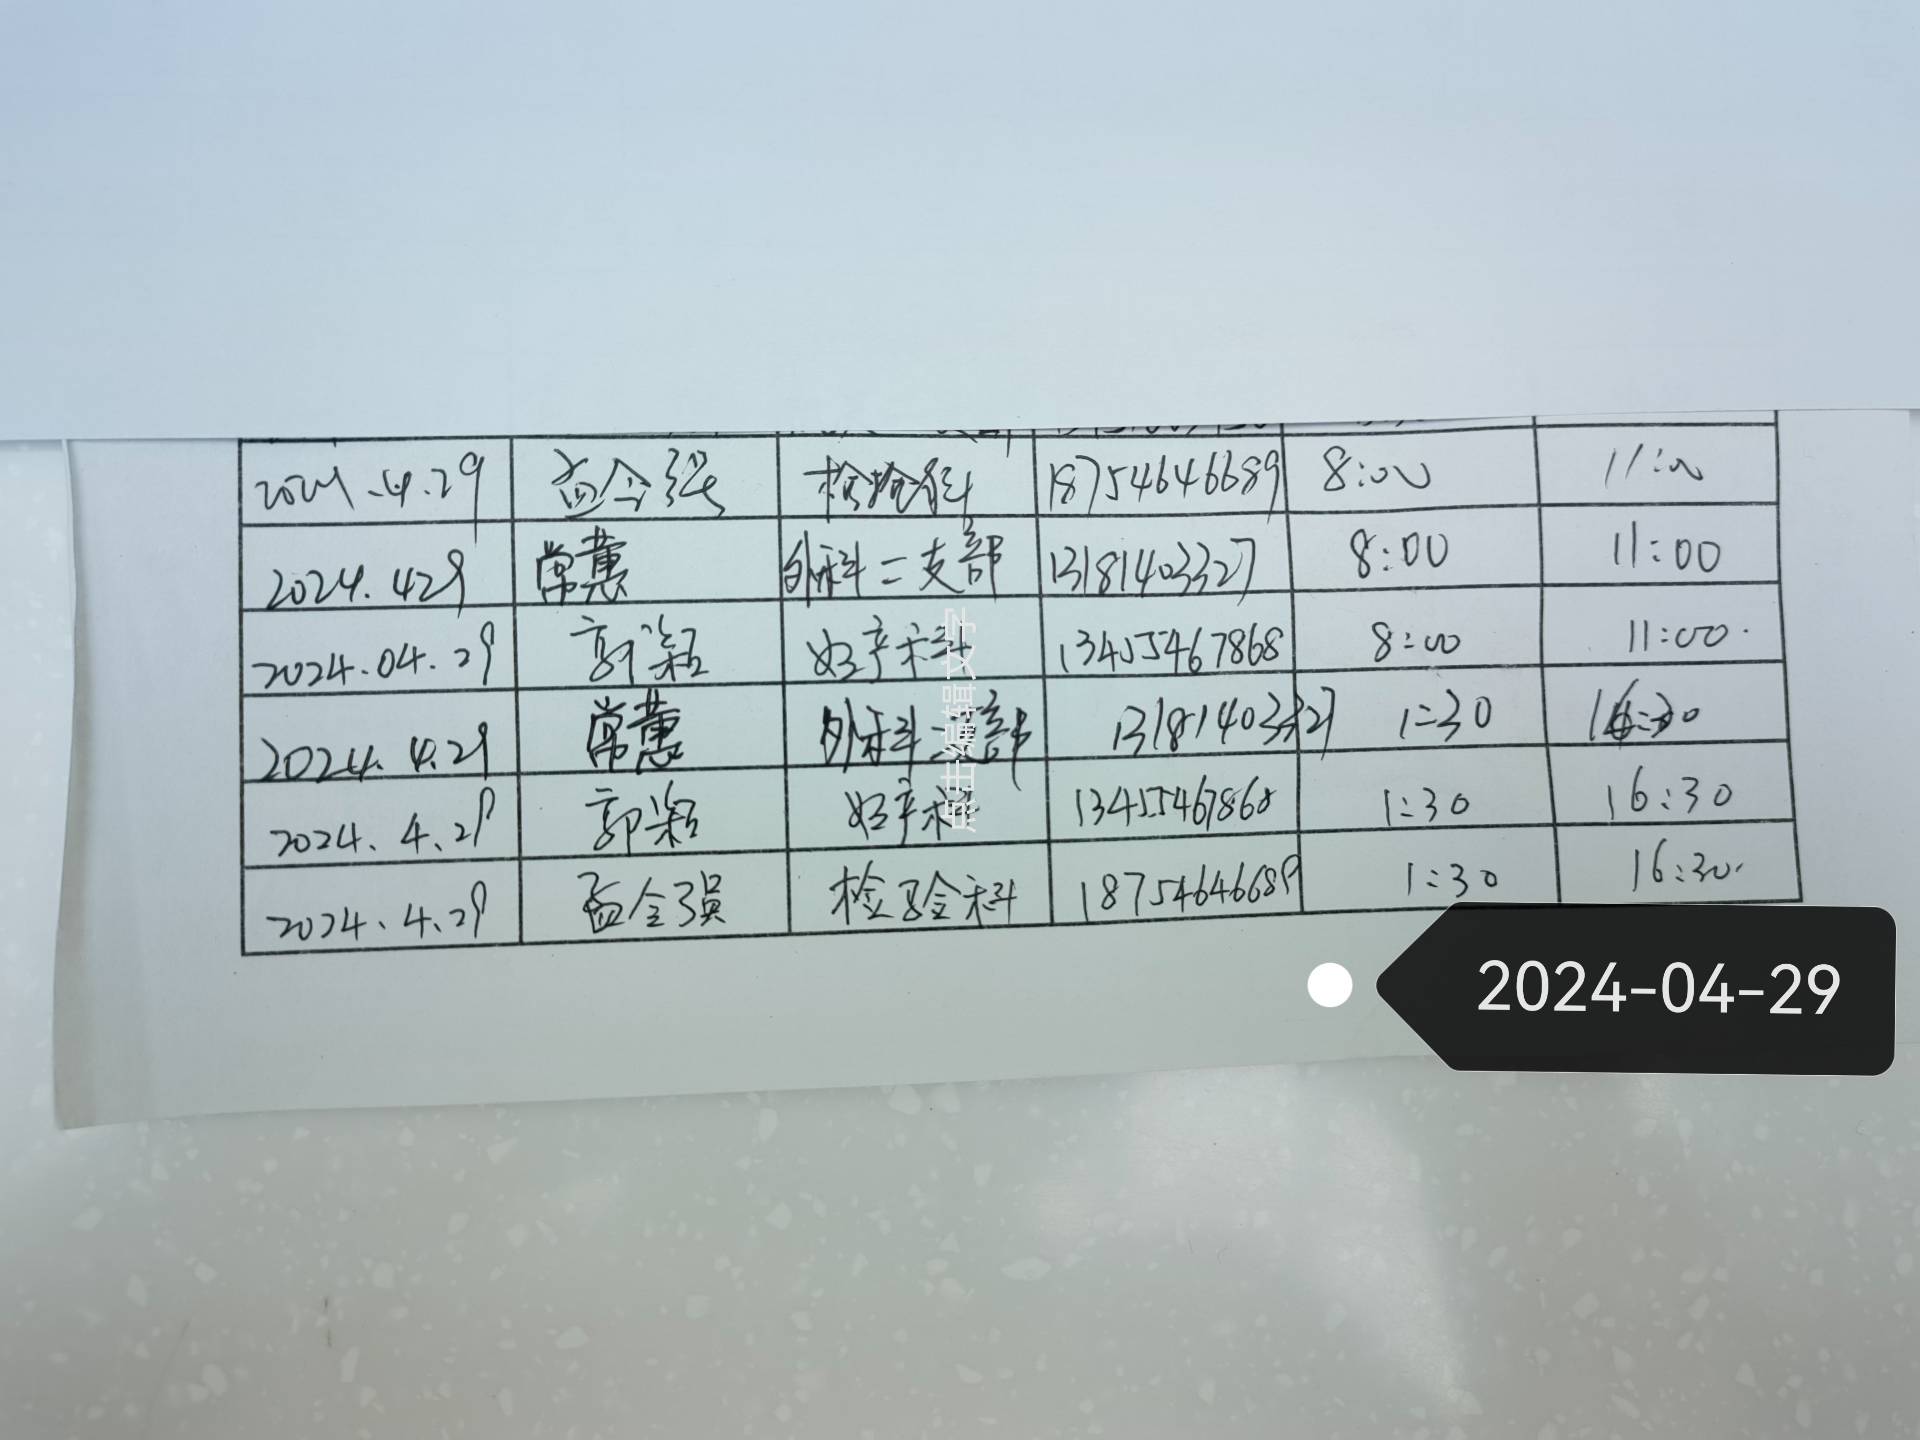 2024.4.29 孟全强 检验科 18754646689 8:00 11:00
2024.429 常蕙 外科二支部 13181403327 8:00 11:00
2024.04.29 郭嵘 妇产科 13455467868 8:00 11:00.
2024.4.29 常蕙 外科二支部 13181403327 1:30 16:30
2024.4.29 郭嵘 妇产科 13455467868 1:30 16:30
2024.4.29 孟全强 检验科 18754646689 1:30 16:30.
点击编辑文字
2024-04-29